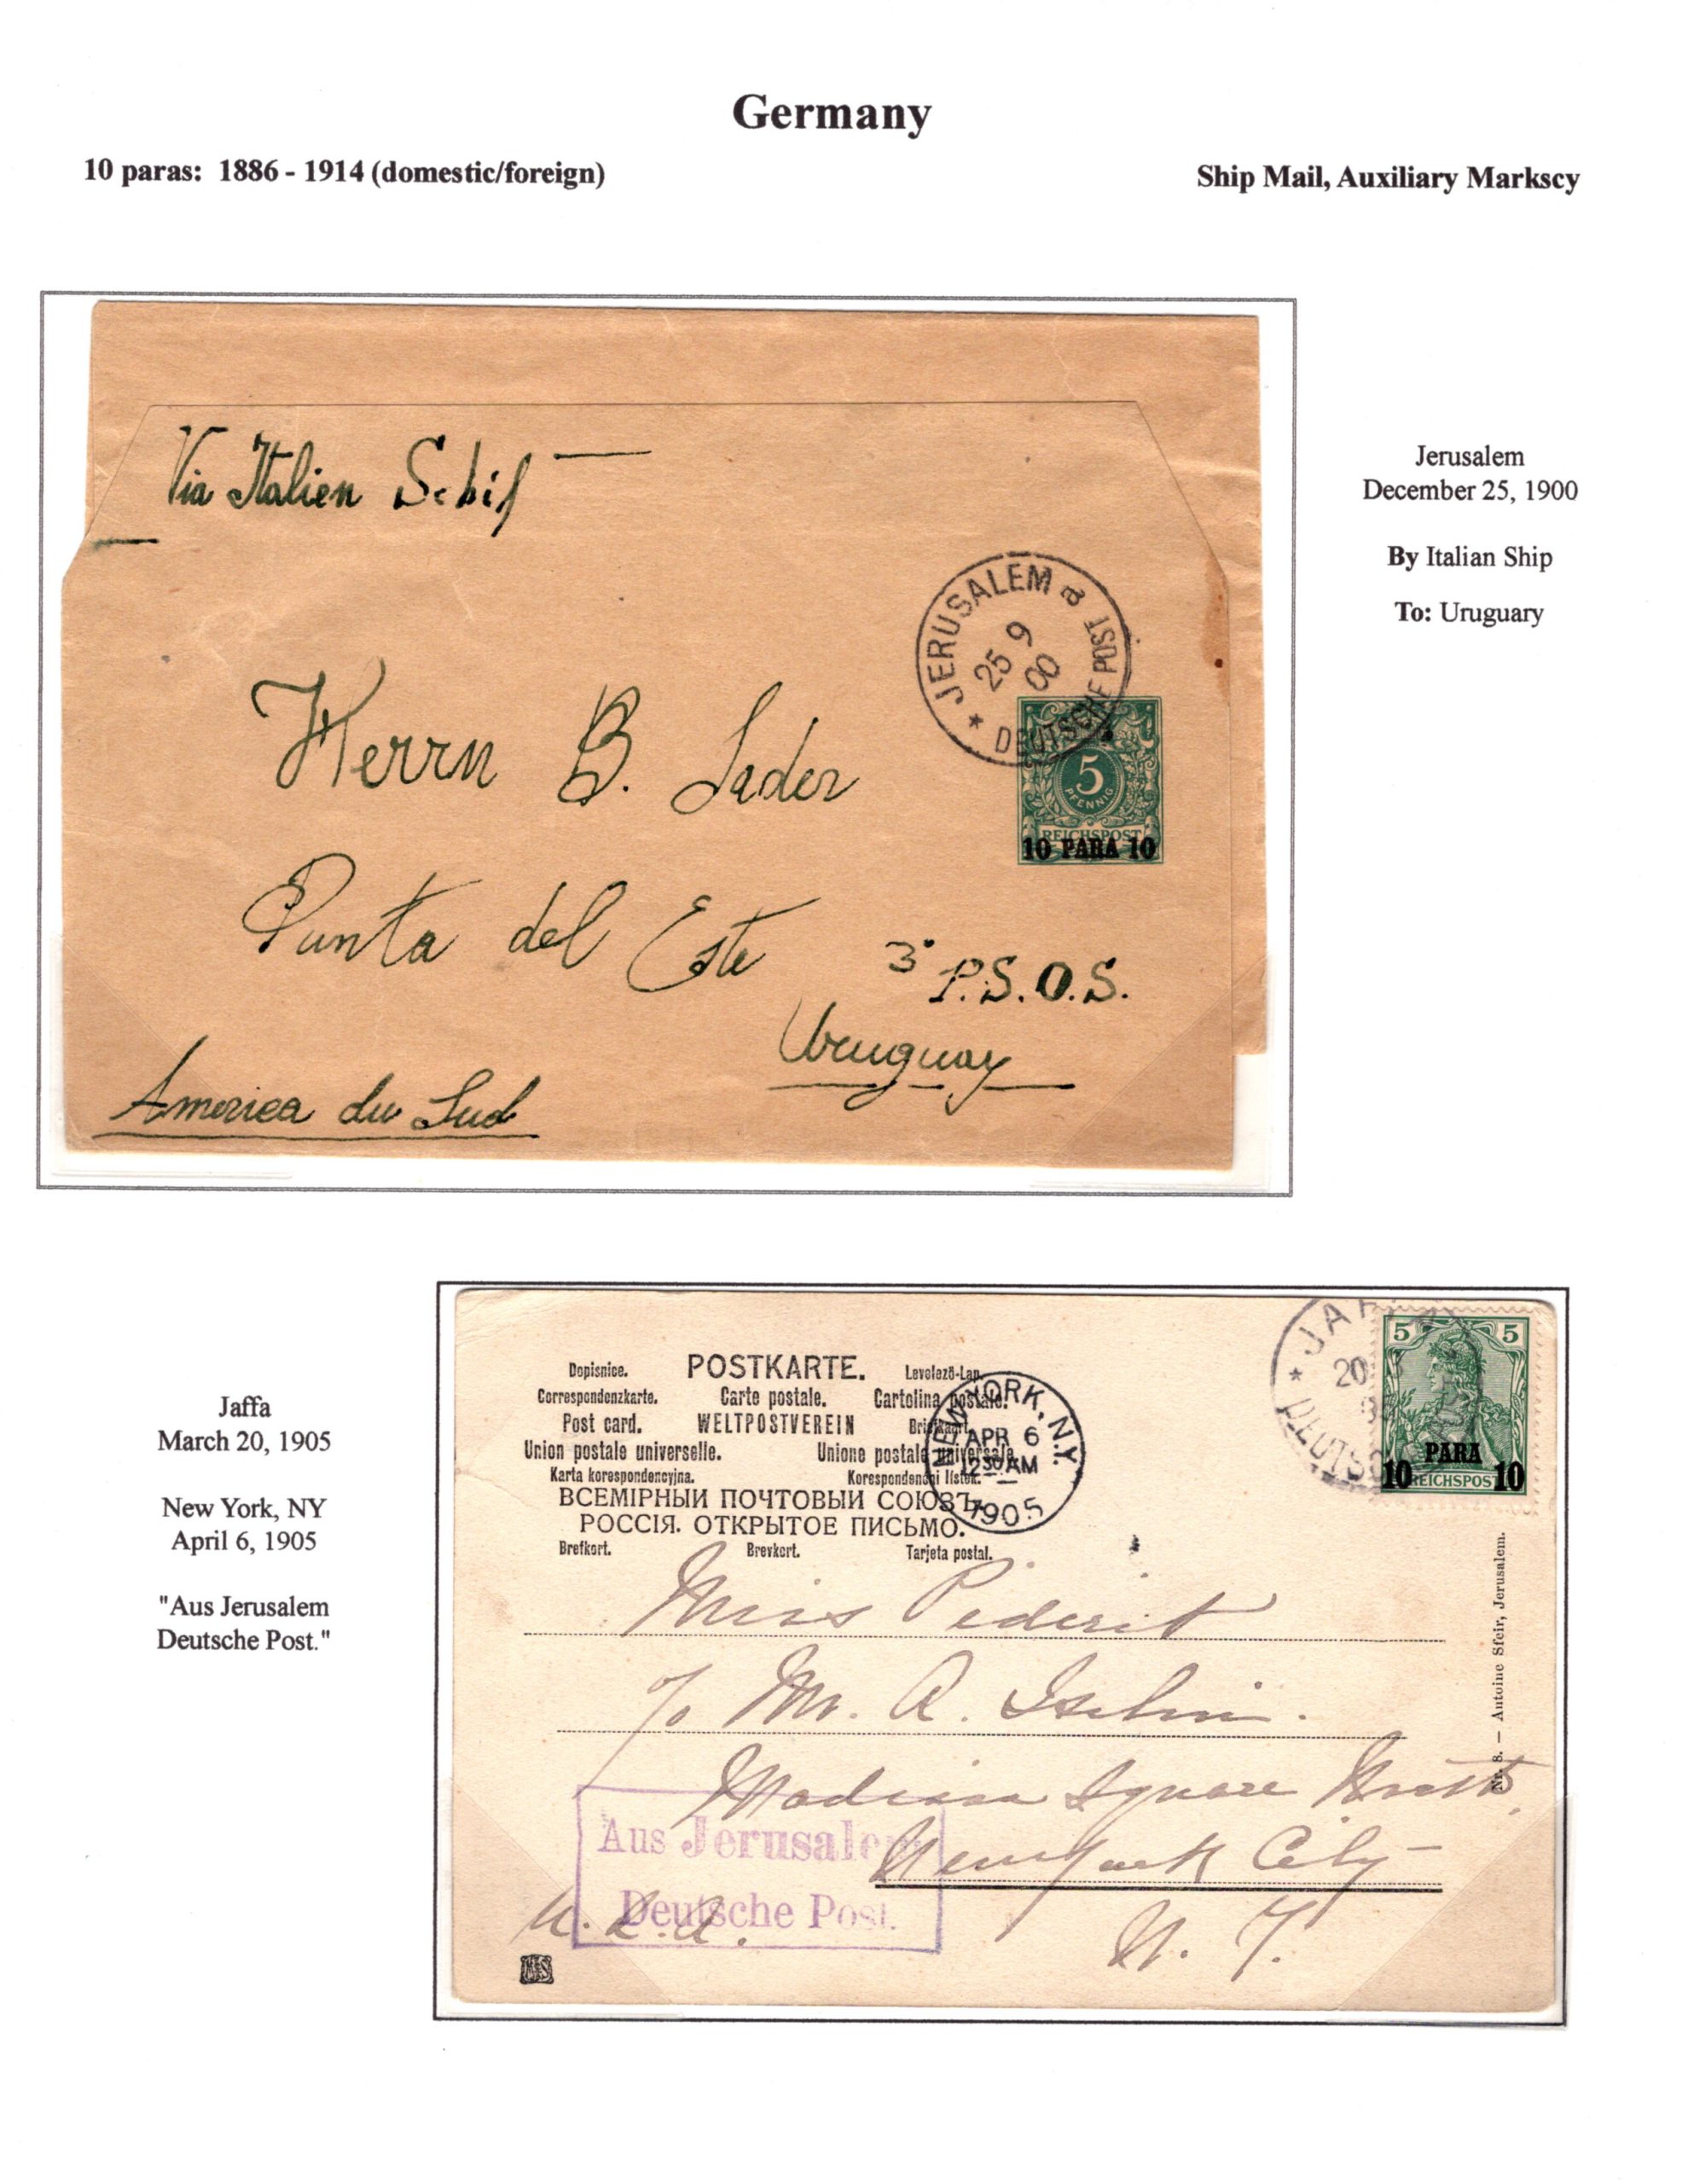 Germany
10 paras: 1886 - 1914 (domestic/foreign)
Ship Mail, Auxiliary Markscy
Via Italien Schif
JERUSALEM a
25 9
00
* DEUTSCHE POST
5
PFENNIG
REICHSPOST
10 PARA 10
Herrn B. Sader
Punta del Este
3° P.S.O.S.
Uruguay
America du Sud
Jerusalem
December 25, 1900
By Italian Ship
To: Uruguary
Jaffa
March 20, 1905
New York, NY
April 6, 1905
"Aus Jerusalem
Deutsche Post."
Dopisnice. POSTKARTE. Levelezö-Lap.
Correspondenzkarte. Carte postale. Cartolina postale.
Post card. WELTPOSTVEREIN Briefkaart.
Union postale universelle. Unione postale universale.
Karta korespondencyjna. Korespondencni listek.
ВСЕМІРНЫЙ ПОЧТОВЫЙ СОЮЗЪ.
РОССІЯ. ОТКРЫТОЕ ПИСЬМО.
Brefkort. Brevkort. Tarjeta postal.
NEW YORK, N.Y.
APR 6
12 30 AM
1905
* JAFFA
20
DEUTSCHE
5 5
PARA
10 REICHSPOST 10
Miss Pederit
c/o Mr. A. Iselin.
Madison Square
New York City
N. Y.
U.S.A.
Aus Jerusalem
Deutsche Post.
Nr. 8. — Antoine Sfeir, Jerusalem.